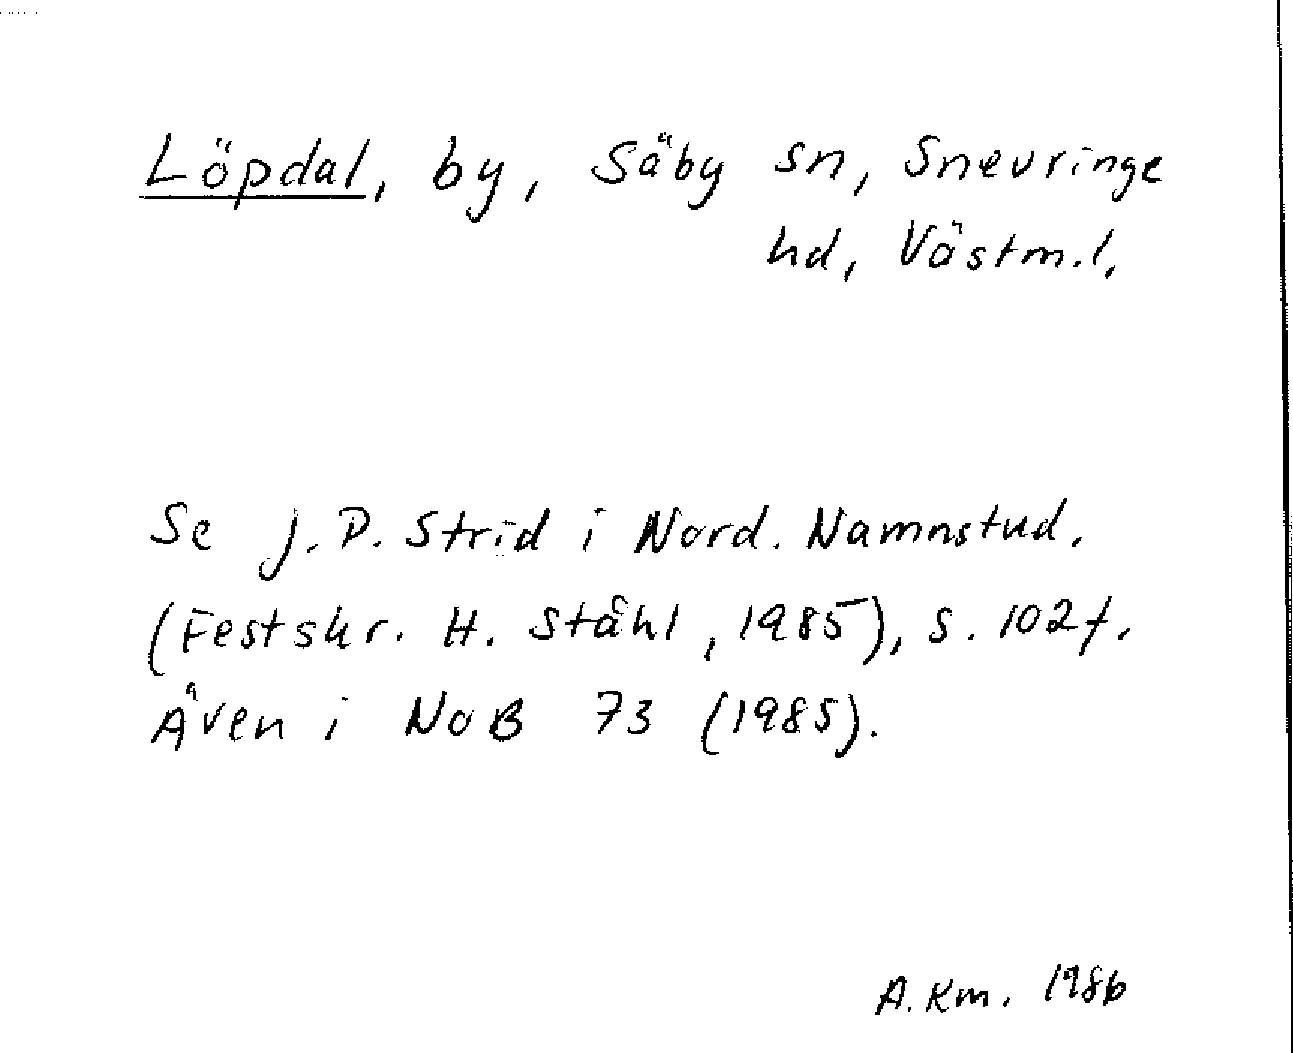 Löpdal, by, Säby sn, Snevringe
hd, Västm.l.
Se J.P. Strid i Nord. Namnstud.
(Festskr. H. Ståhl, 1985), s. 102f.
Även i NoB 73 (1985).
A. Km. 1986